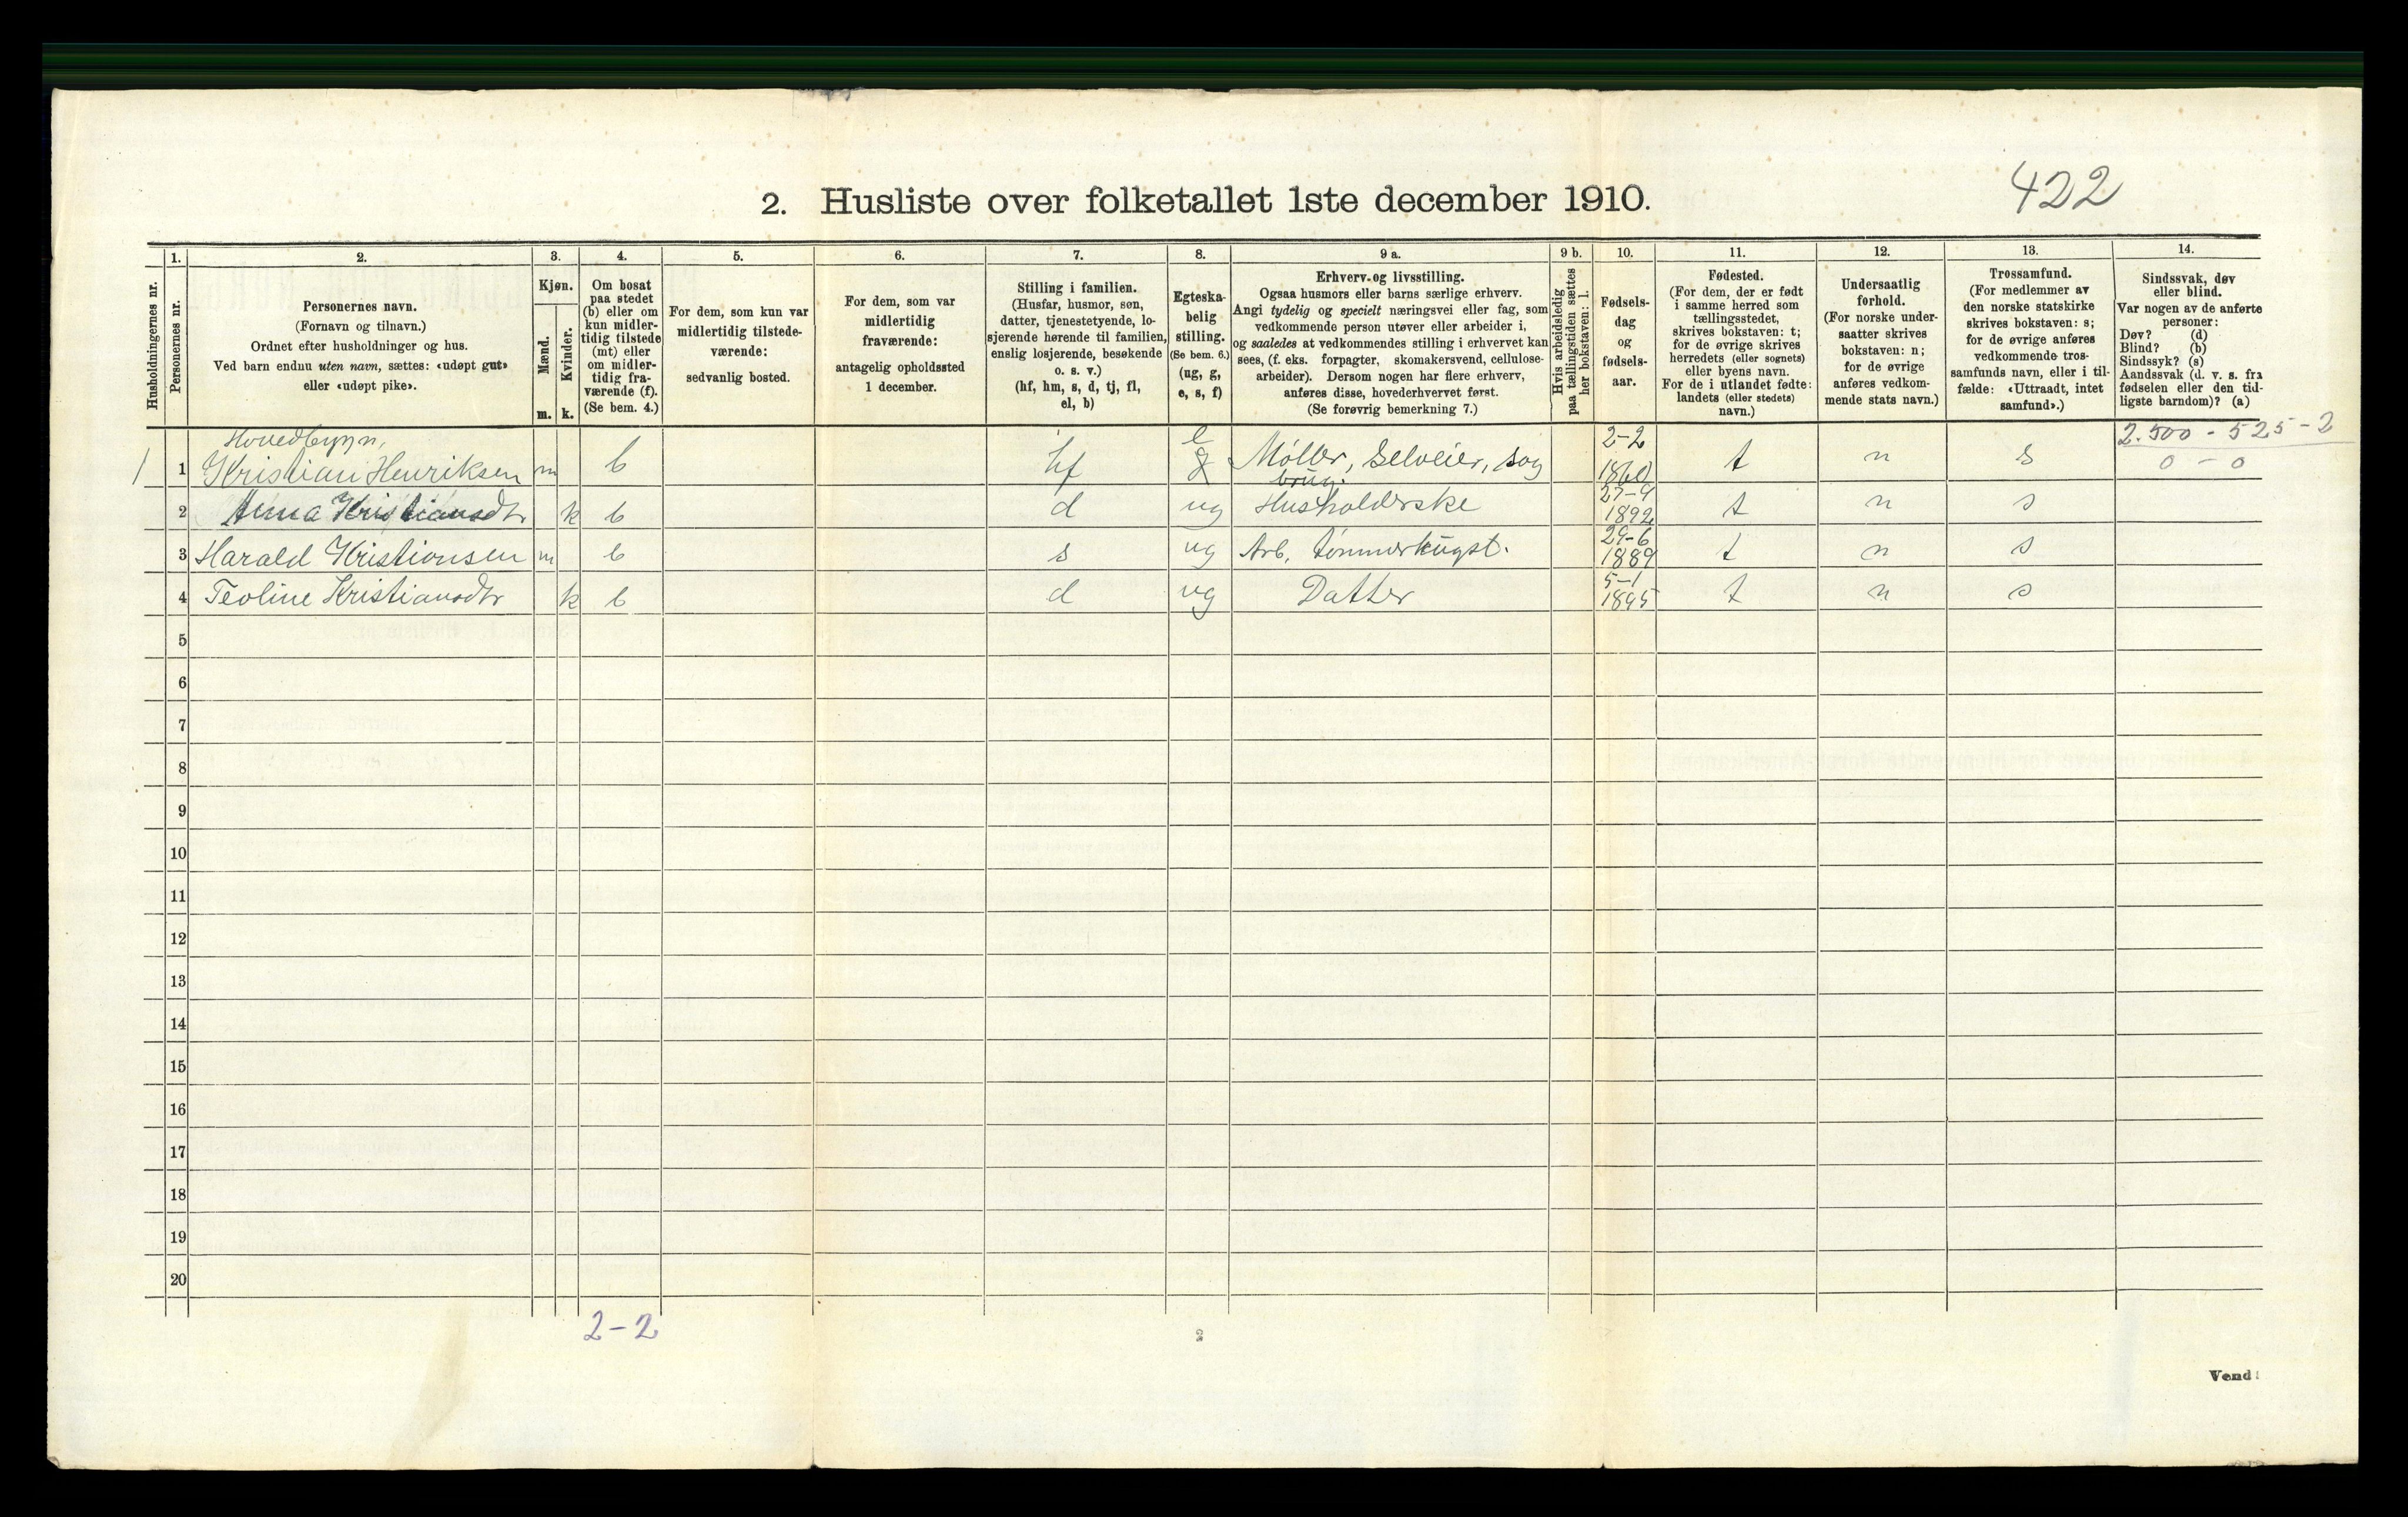 422
2. Husliste over folketallet 1ste december 1910.
Husholdningernes nr.
1.
Personernes nr.
2.
Personernes navn.
(Fornavn og tilnavn.)
Ordnet efter husholdninger og hus.
Ved barn endnu uten navn, sættes: «udøpt gut»
eller «udøpt pike».
3.
Kjøn.
Mænd.
m.
Kvinder.
k.
4.
Om bosat
paa stedet
(b) eller om
kun midler-
tidig tilstede
(mt) eller
om midler-
tidig fra-
værende (f).
(Se bem. 4.)
5.
For dem, som kun var
midlertidig tilstede-
værende:
sedvanlig bosted.
6.
For dem, som var
midlertidig
fraværende:
antagelig opholdssted
1 december.
7.
Stilling i familien.
(Husfar, husmor, søn,
datter, tjenestetyende, lo-
sjerende hørende til familien,
enslig losjerende, besøkende
o. s. v.)
(hf, hm, s, d, tj, fl,
el, b)
8.
Egteska-
belig
stilling.
(Se bem. 6.)
(ug, g,
e, s, f)
9 a.
Erhverv og livsstilling.
Ogsaa husmors eller barns særlige erhverv.
Angi tydelig og specielt næringsvei eller fag, som
vedkommende person utøver eller arbeider i,
og saaledes at vedkommendes stilling i erhvervet kan
sees, (f. eks. forpagter, skomakersvend, cellulose-
arbeider). Dersom nogen har flere erhverv,
anføres disse, hovederhvervet først.
(Se forøvrig bemerkning 7.)
9 b.
Hvis arbeidsledig
paa tællingstiden sættes
her bokstaven: l.
10.
Fødsels-
dag
og
fødsels-
aar.
11.
Fødested.
(For dem, der er født
i samme herred som
tællingsstedet,
skrives bokstaven: t;
for de øvrige skrives
herredets (eller sognets)
eller byens navn.
For de i utlandet fødte:
landets (eller stedets)
navn.)
12.
Undersaatlig
forhold.
(For norske under-
saatter skrives
bokstaven: n;
for de øvrige
anføres vedkom-
mende stats navn.)
13.
Trossamfund.
(For medlemmer av
den norske statskirke
skrives bokstaven: s;
for de øvrige anføres
vedkommende tros-
samfunds navn, eller i til-
fælde: «Uttraadt, intet
samfund».)
14.
Sindssvak, døv
eller blind.
Var nogen av de anførte
personer:
Døv? (d)
Blind? (b)
Sindssyk? (s)
Aandssvak (d. v. s. fra
fødselen eller den tid-
ligste barndom)? (a)
Hovedbygn,
e 2-2 2.500 - 525 - 2
1 1 Kristian Henriksen m b hf g Møller, Selveier, sag 1860 t n s 0 - 0
brug.
27-9
2 Anna Kristiansdtr k b d ug Husholderske 1892 t n s
29-6
3 Harald Kristiansen m b s ug Arb. tømmerhugst. 1889 t n s
5-1
4 Teoline Kristiansdtr k b d ug Datter 1895 t n s
5
6
7
8
9
10
11
12
13
14
15
16
17
18
19
20
2-2
2
Vend!